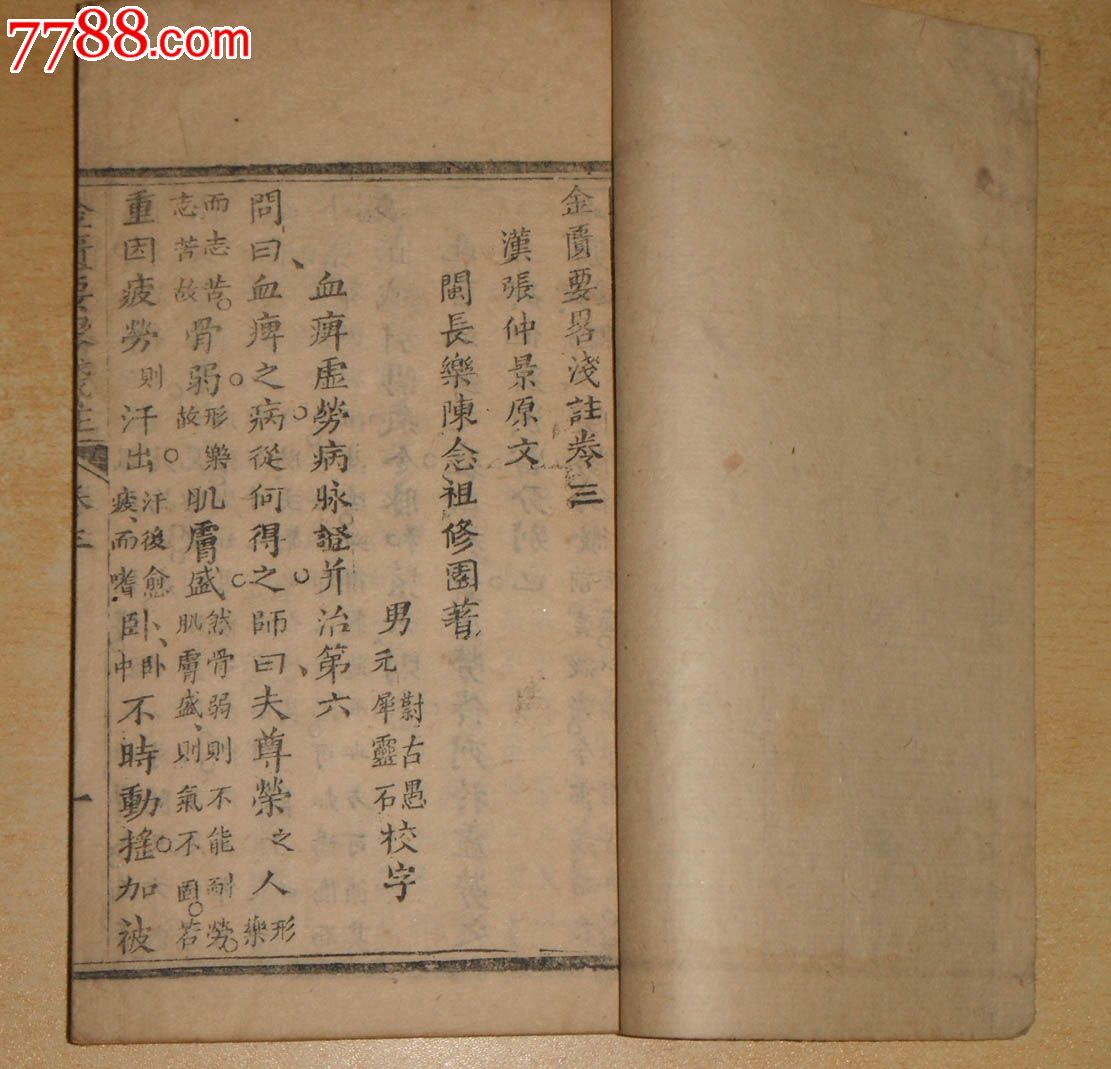 7788.com
金匱要畧淺註卷三
漢張仲景原文
閩長樂陳念祖修園著
男元犀靈石蔚古愚校字
血痺虛勞病脉證并治第六
問曰血痺之病從何得之師曰夫尊榮之人形樂
而志苦志苦故骨弱形樂故肌膚盛然骨弱則不能耐勞肌膚盛則氣不固若
重因疲勞則汗出汗後愈疲而嗜卧卧中不時動搖加被
金匱要畧淺註
卷三
一